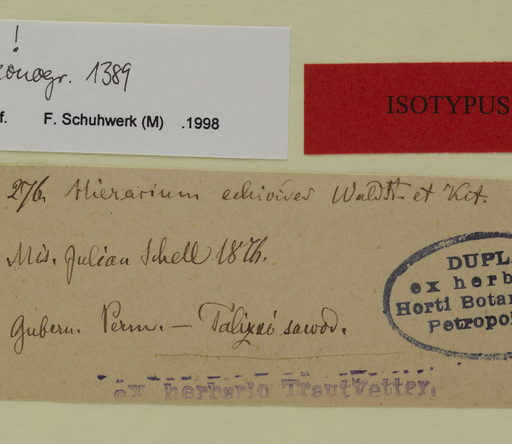 !
onogr. 1389
f. F. Schuhwerk (M) .1998
ISOTYPUS
276. Hieracium echioides Waldst. et Kit.
Mis. Julian Schell 1876.
Gubern. Perm. — sawod.
DUPL
ex herb
Horti Botan
Petropol
ex herbario Trautvetter.